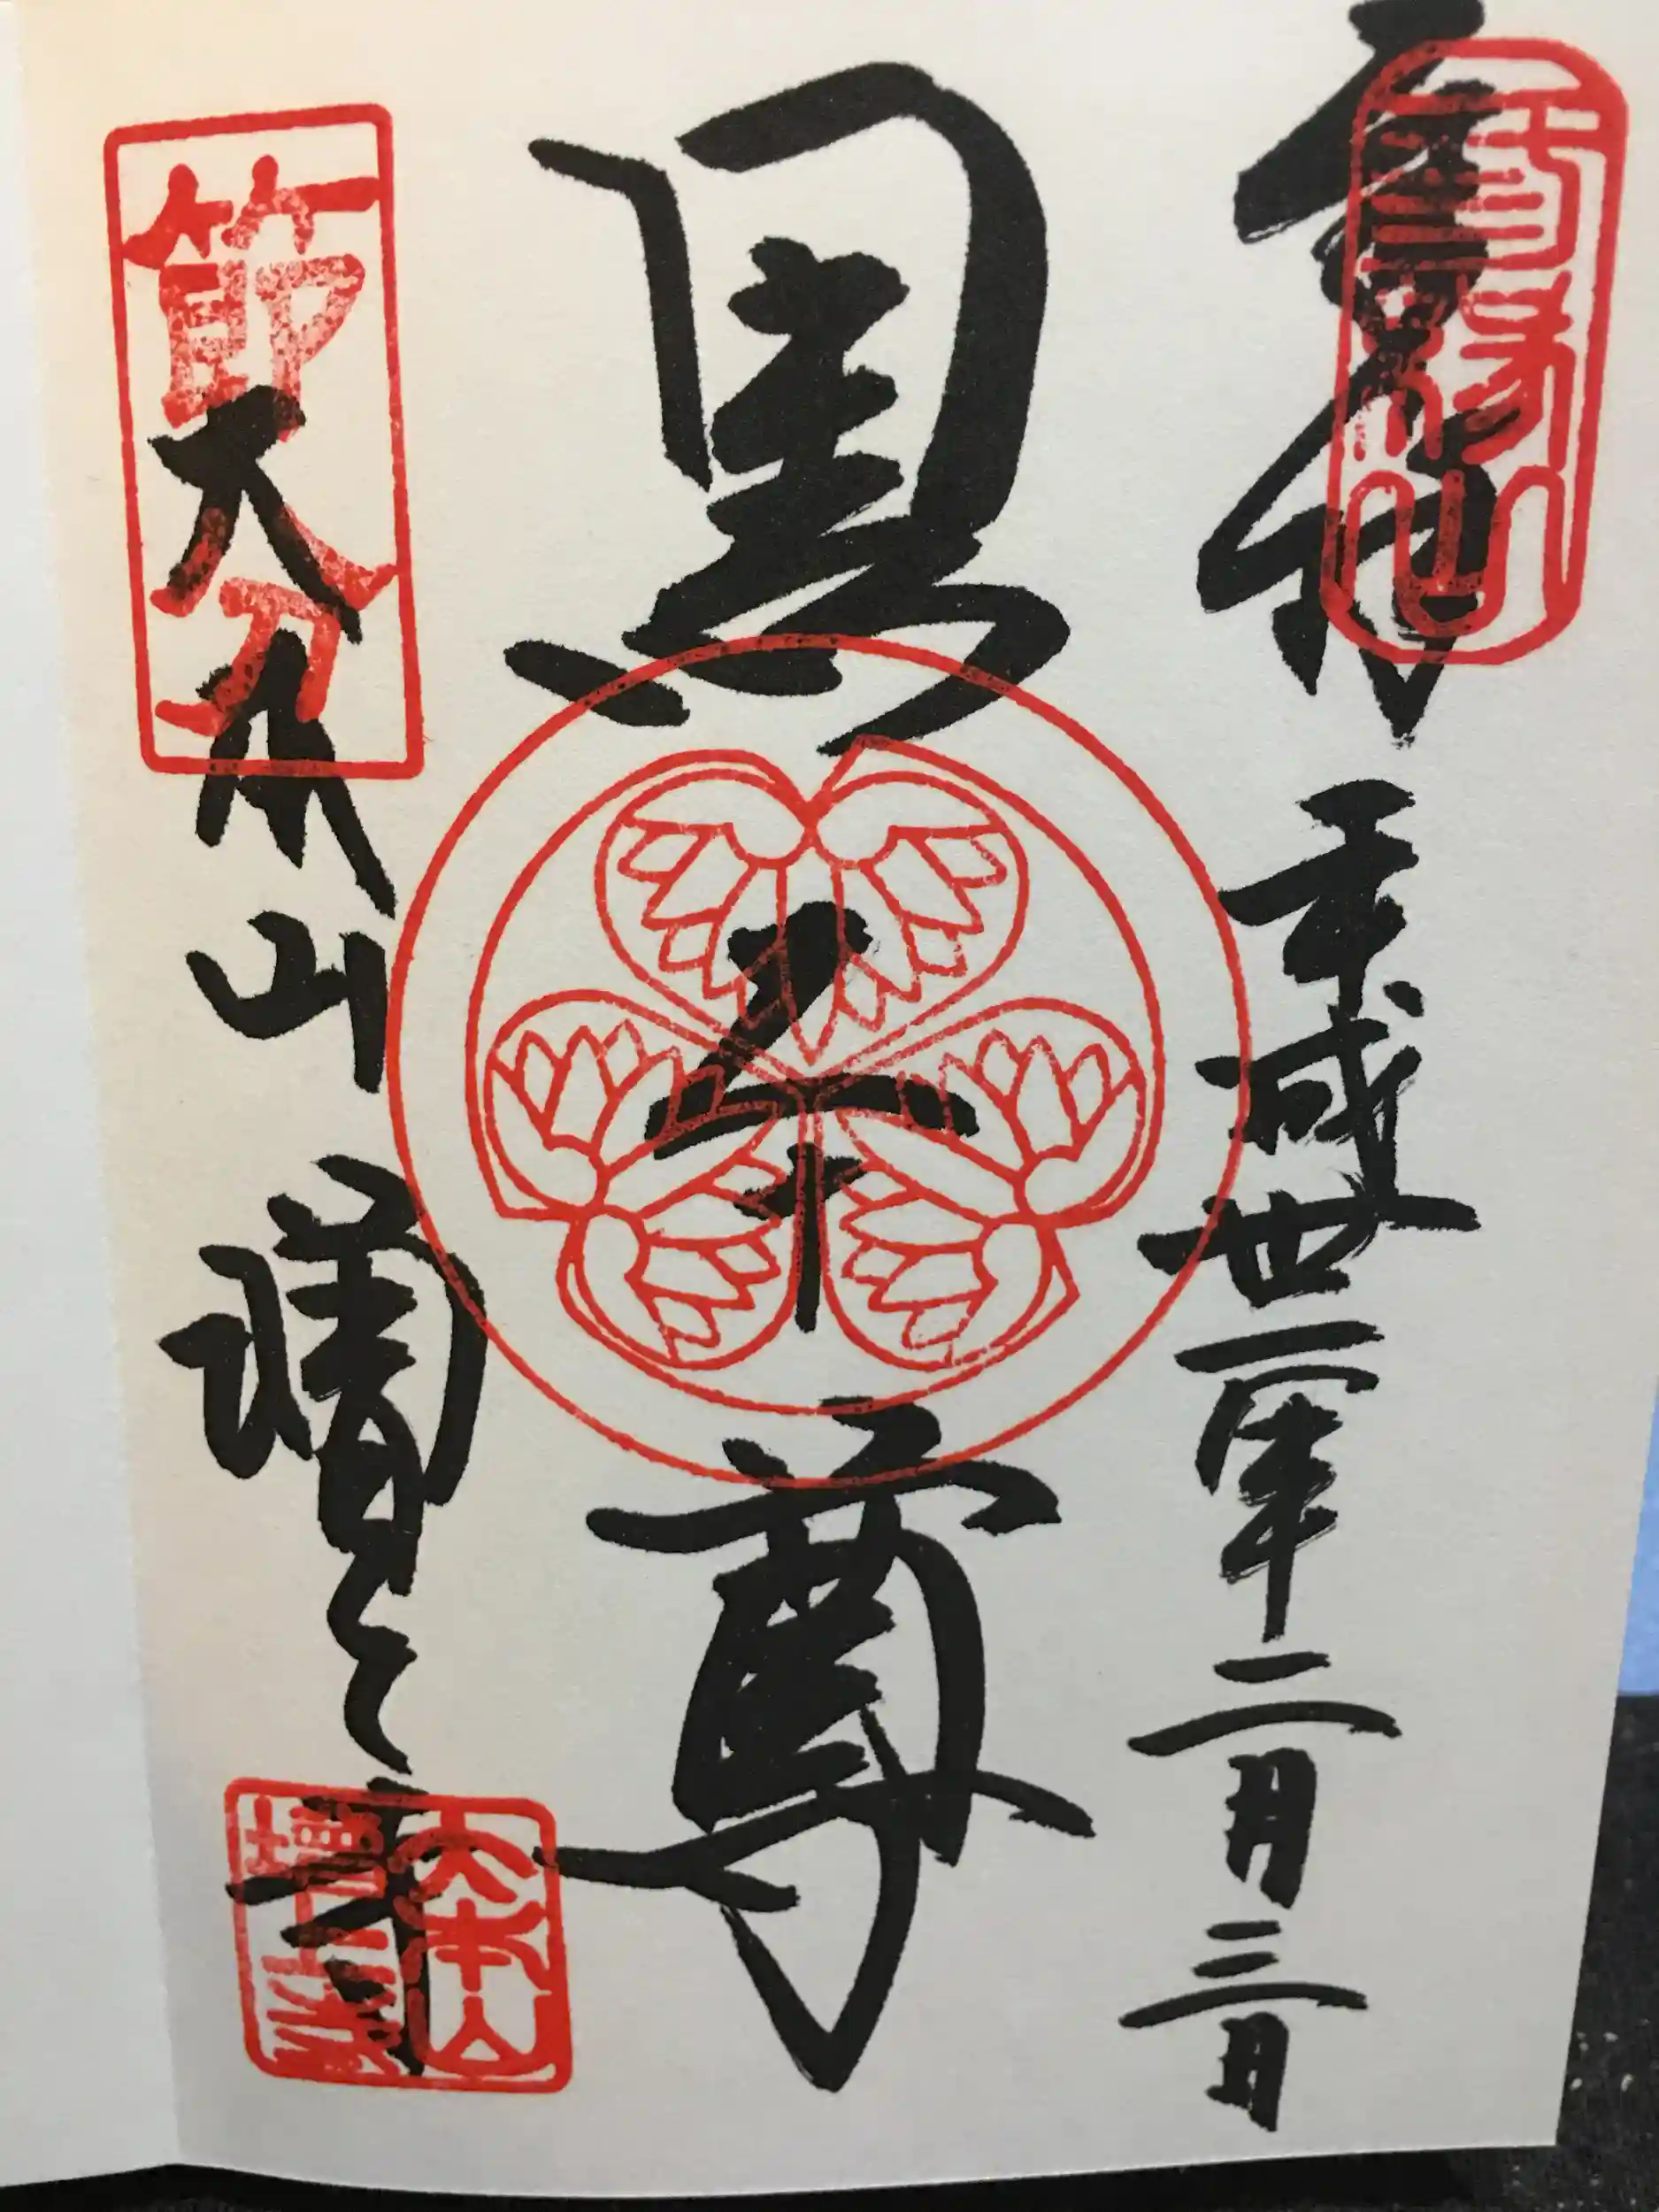 奉拝 平成卅一年二月三日
三縁山
黒本尊
大本山 増上寺
節分
大本山
増上寺